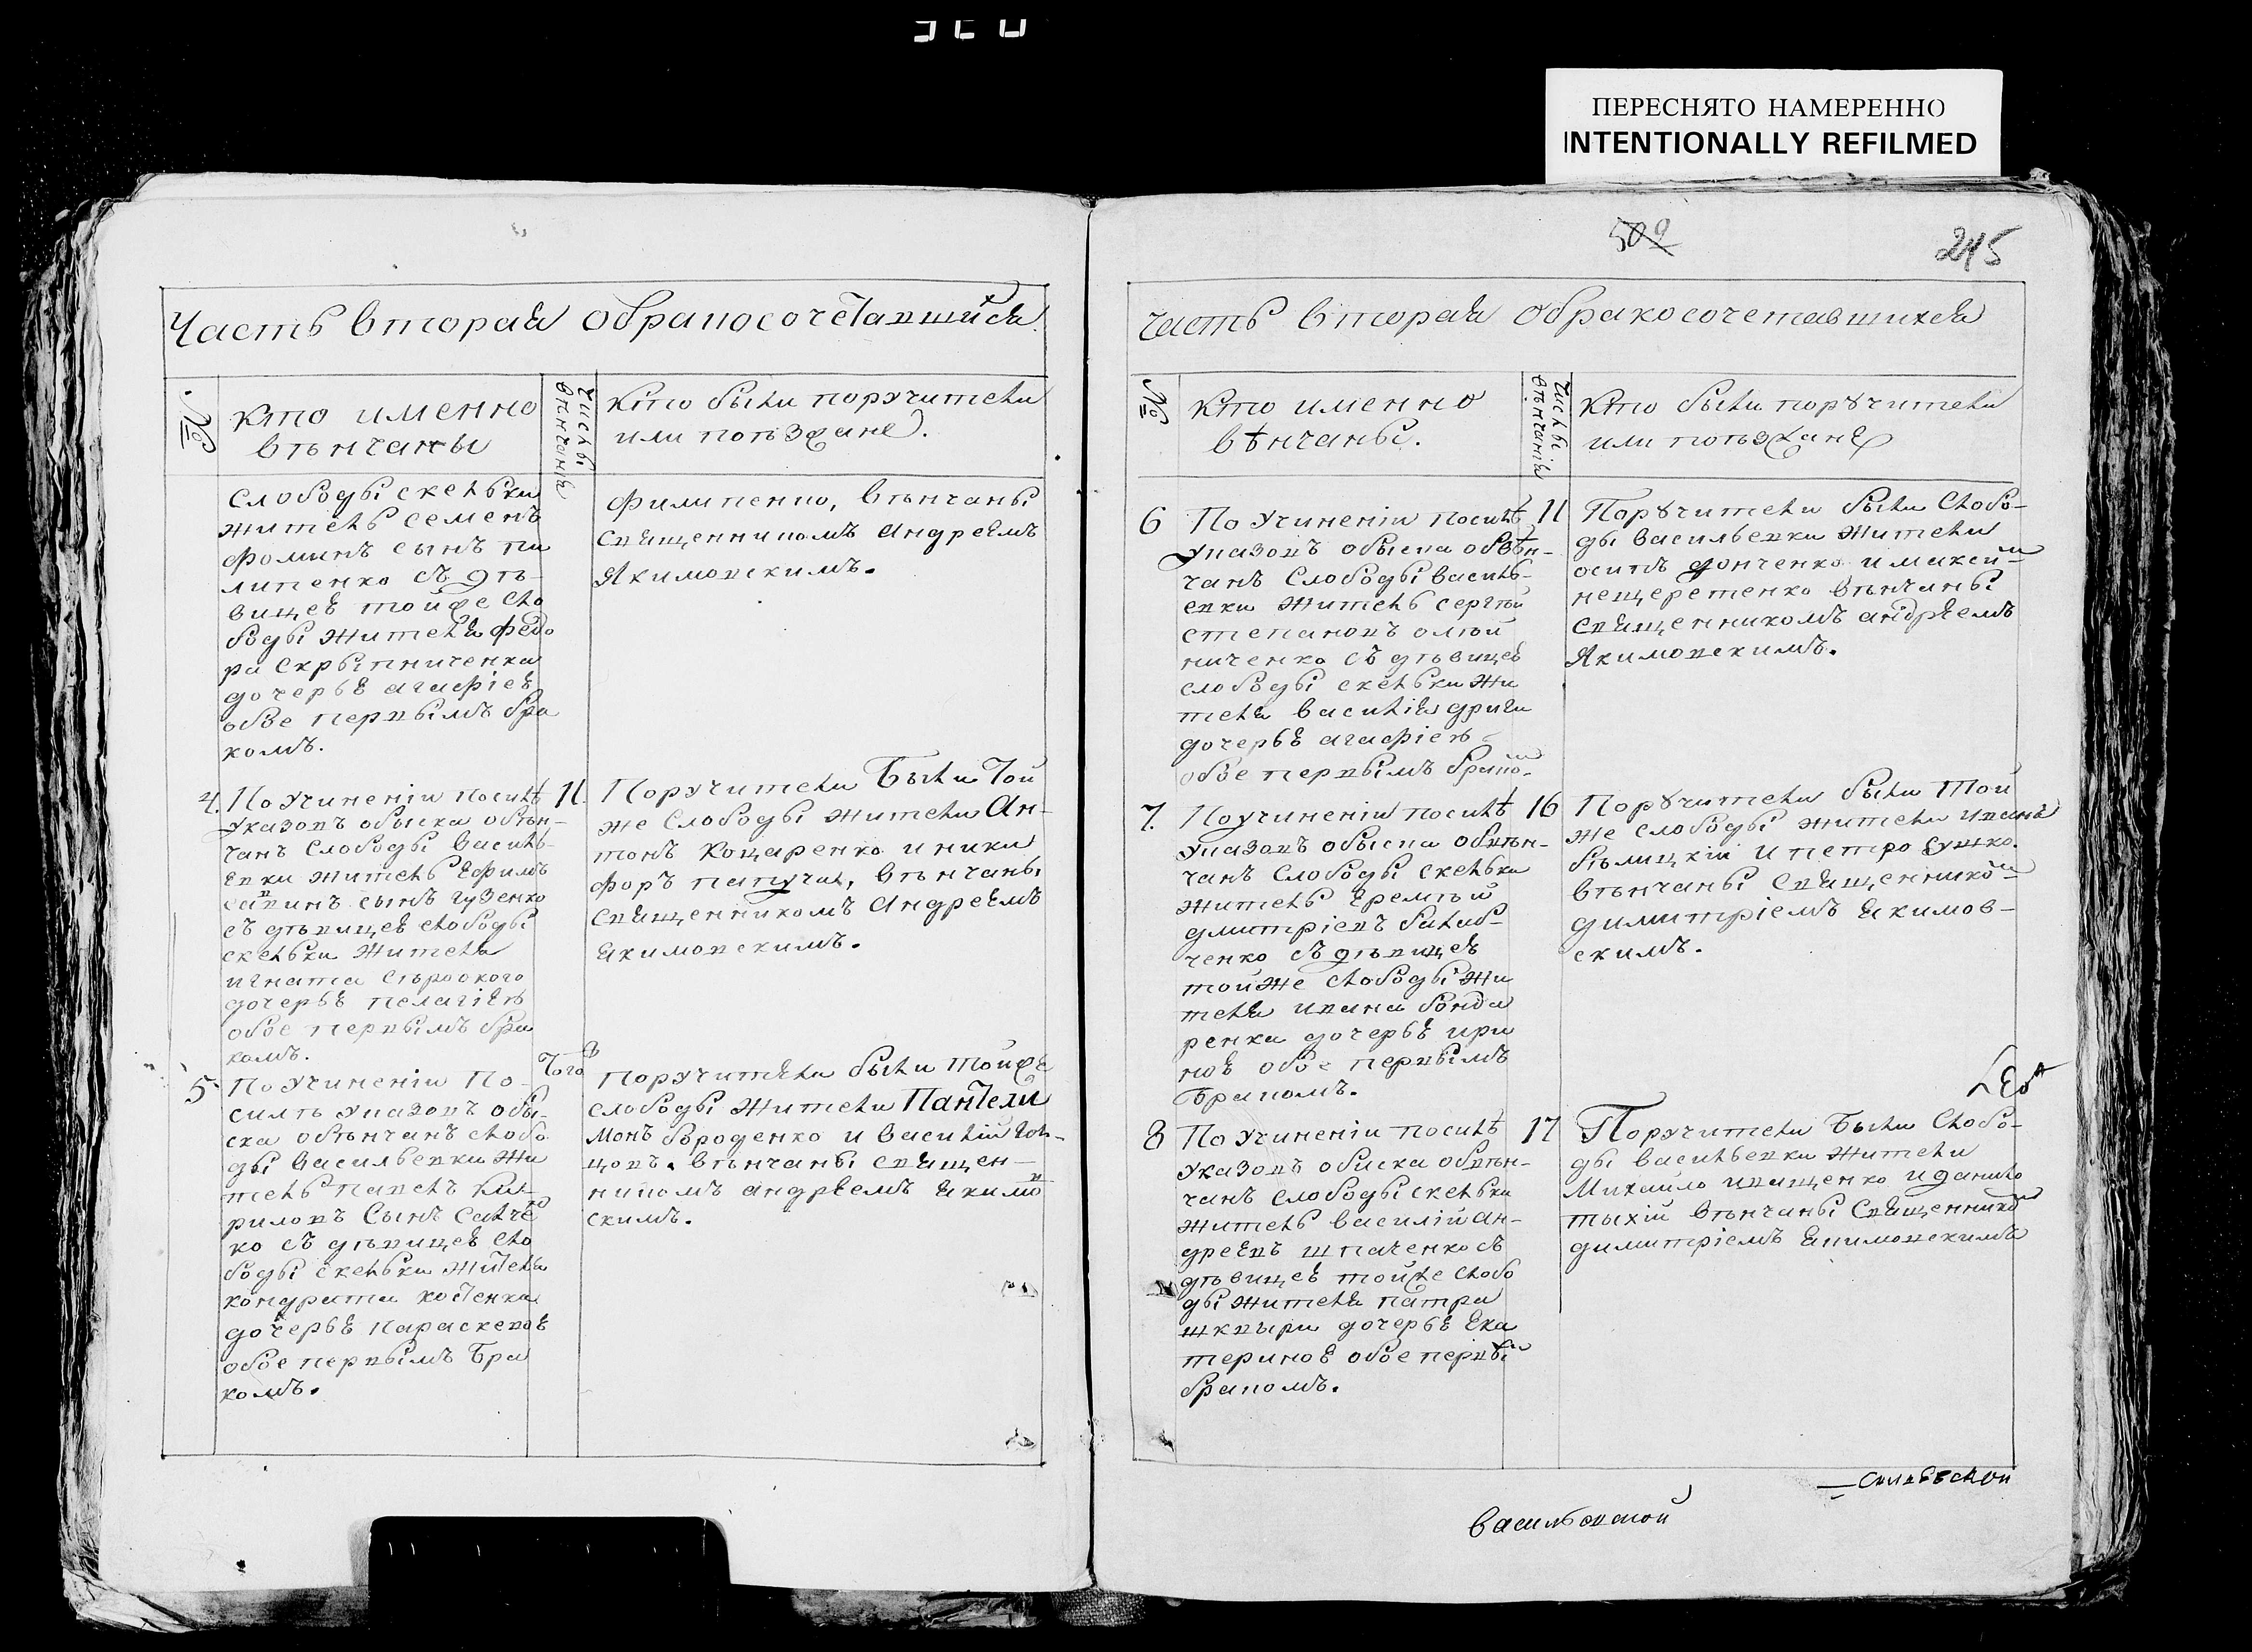 ПЕРЕСНЯТО НАМЕРЕННО
INTENTIONALLY REFILMED
509
245
Часть вторая обракосочетавшихся
№
Кто именно
вѣнчаны
Числы
вѣнчанія
Кто были поручители
или поѣзжане.
слободы скельки
житель семенъ
фоминъ сынъ пи
липенко съ дѣ-
вицеѣ тойже сло
боды жителя федо
ра скрыпниченка
дочерьѣ агафіеѣ
обое первымъ бра
комъ.
филипенко, вѣнчаны
священникомъ андреемъ
Якимовскимъ.
4. По учиненіи посилѣ
указовъ обыска обвѣн-
чанъ слободы василь-
евки житель ефимъ
савинъ сынъ гузенко
съ дѣвицеѣ слободы
скельки жителя
игната
дочерьѣ пелагіеѣ
обое первымъ бра
комъ.
11.
Поручители Были Той
же слободы жители Ан-
тонъ Коцаренко и ники
форъ папучи, вѣнчаны
священникомъ Андреемъ
якимовскимъ.
5. По учиненіи По-
силѣ указовъ обы-
ска обвѣнчанъ слобо
ды васильевки жи
тель павелъ ки-
риловъ сынъ
ко съ дѣвицеѣ сло
боды скельки жителя
кондрата костенка
дочерьѣ параскевоѣ
обое первымъ бра
комъ.
Того
Поручители были тойже
слободы жители Пантели
монъ бороденко и василій
цовъ. вѣнчаны священ-
никомъ андреемъ якимов
скимъ.
Часть вторая обракосочетавшихся
№
Кто именно
вѣнчаны.
Числы
вѣнчанія
Кто были поручители
или поѣзжане
6 По учиненіи посилѣ
указовъ обыска обвѣн-
чанъ слободы василь-
евки житель сергѣй
степановъ олѣй
ниченко съ дѣвицеѣ
слободы скельки жи
теля василія дриги
дочерьѣ агафіеѣ
обое первымъ бракомъ
11
Поручители были слобо-
ды васильевки жители
осипъ донченко и максим
нещеретенко вѣнчаны
священникомъ андреемъ
Якимовскимъ.
7. По учиненіи посилѣ
указовъ обыска обвѣн-
чанъ слободы скельки
житель еремѣй
дмитріевъ
ченко съ дѣвицеѣ
тойже слободы жи
теля ивана бонда
ренка дочерьѣ ири
ноѣ обое первымъ
бракомъ.
16
Поручители были той
же слободы жители иванъ
бѣлицкій и петро сушко.
вѣнчаны священником
димитріемъ якимов-
скимъ.
8 По учиненіи посилѣ
указовъ обиска обвѣн-
чанъ слободы скельки
житель василій ан-
дреевъ шпаченко съ
дѣвицеѣ тойже слобо
ды жителя патра
шквыри дочерьѣ ека
териноѣ обое первым
бракомъ.
17
Поручители были слобо-
ды васильевки жители
михайло иващенко и данило
тыхій вѣнчаны священником
димитріемъ якимовскимъ
васильевской